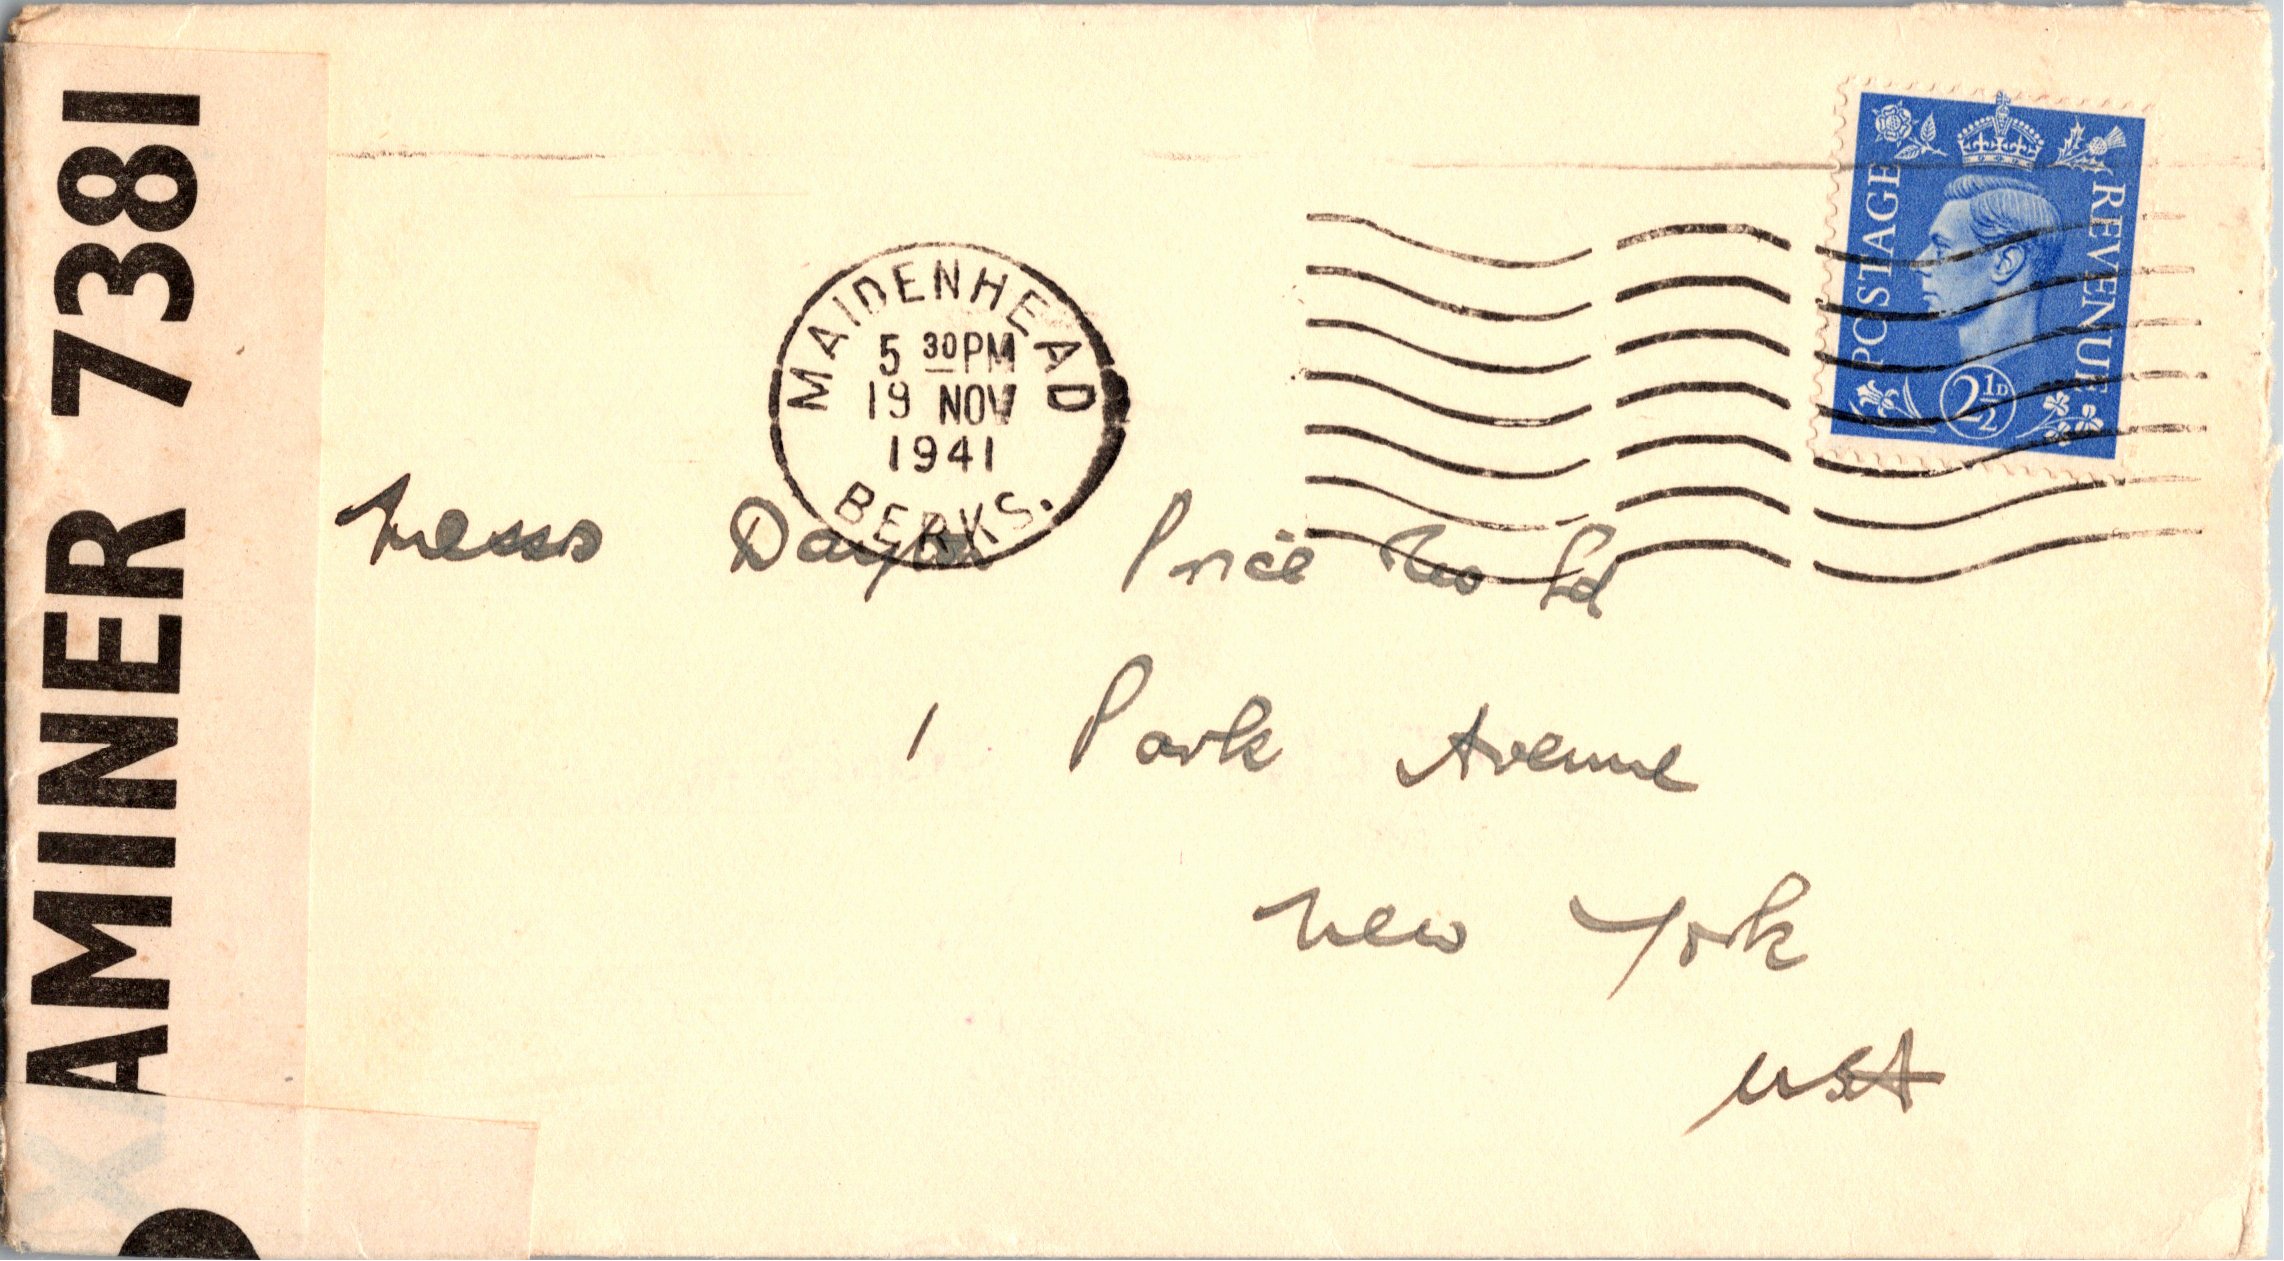 AMINER 7381
MAIDENHEAD
5 30 PM
19 NOV
1941
BERKS.
POSTAGE
REVENUE
2½D
Messrs Dayton Price & Co Ld
1 Park Avenue
New York
USA